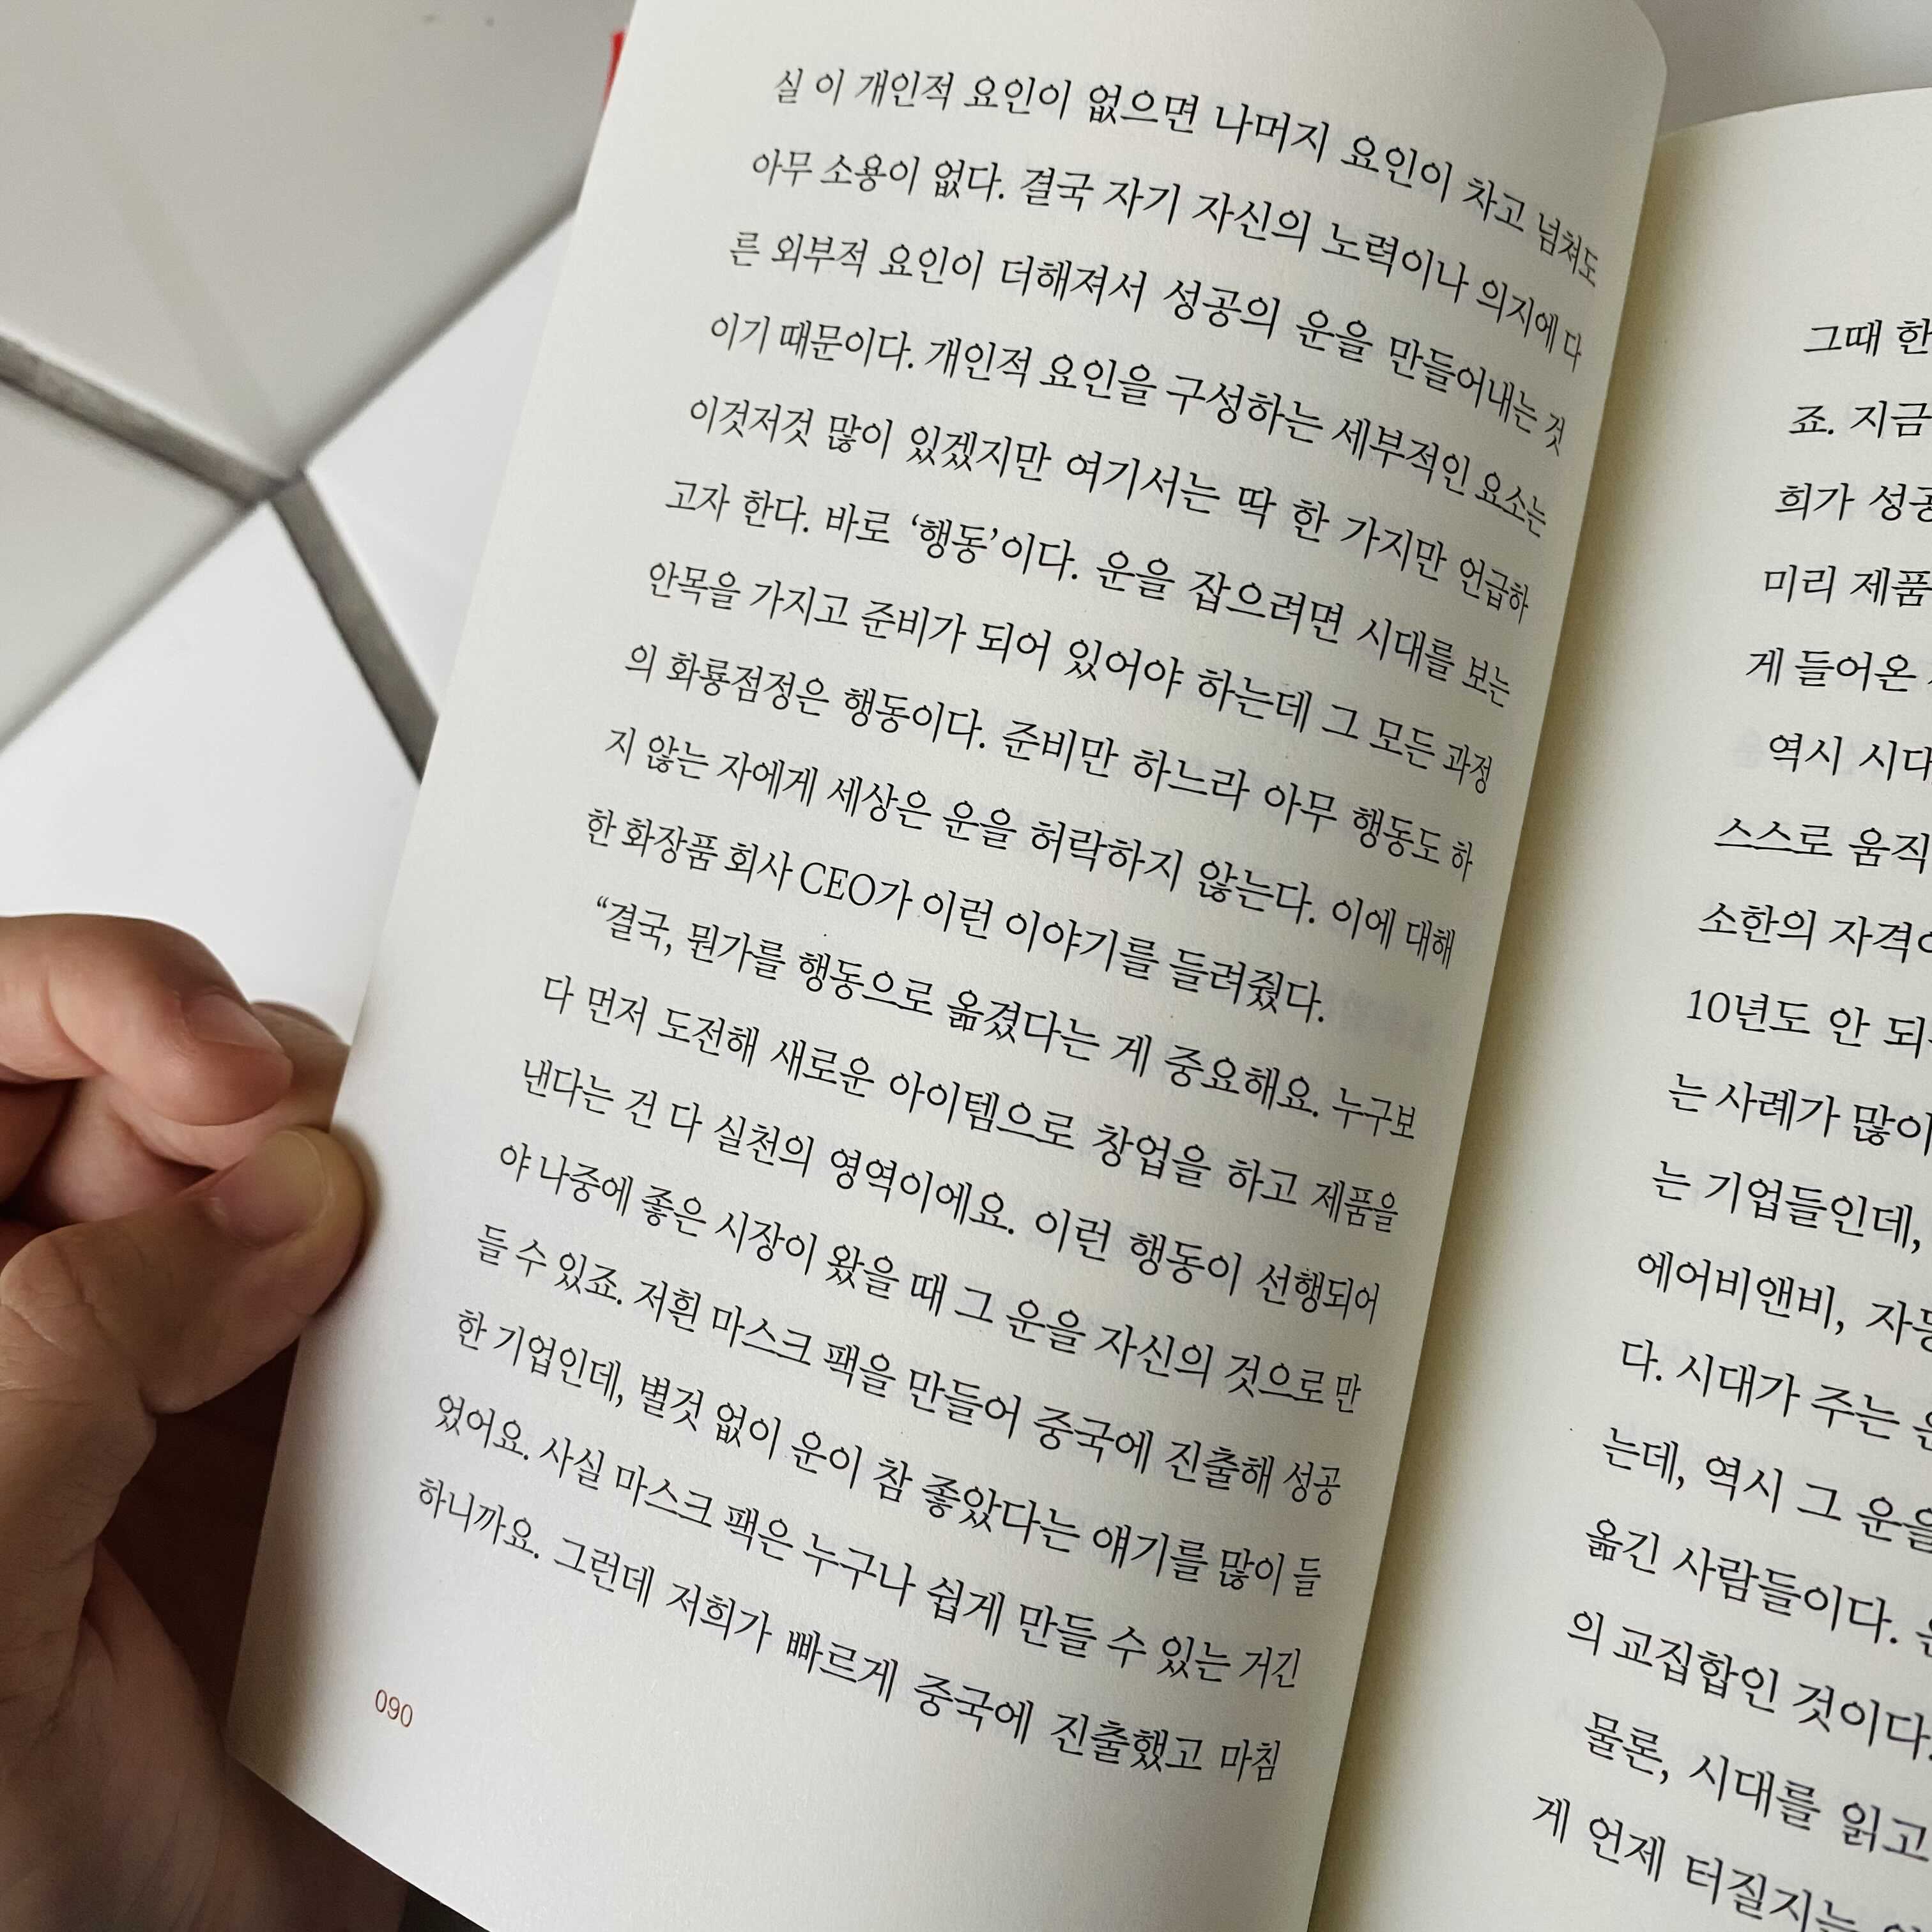 실 이 개인적 요인이 없으면 나머지 요인이 차고 넘쳐도
아무 소용이 없다. 결국 자기 자신의 노력이나 의지에 다
른 외부적 요인이 더해져서 성공의 운을 만들어내는 것
이기 때문이다. 개인적 요인을 구성하는 세부적인 요소는
이것저것 많이 있겠지만 여기서는 딱 한 가지만 언급하
고자 한다. 바로 ‘행동’이다. 운을 잡으려면 시대를 보는
안목을 가지고 준비가 되어 있어야 하는데 그 모든 과정
의 화룡점정은 행동이다. 준비만 하느라 아무 행동도 하
지 않는 자에게 세상은 운을 허락하지 않는다. 이에 대해
한 화장품 회사 CEO가 이런 이야기를 들려줬다.
“결국, 뭔가를 행동으로 옮겼다는 게 중요해요. 누구보
다 먼저 도전해 새로운 아이템으로 창업을 하고 제품을
낸다는 건 다 실천의 영역이에요. 이런 행동이 선행되어
야 나중에 좋은 시장이 왔을 때 그 운을 자신의 것으로 만
들 수 있죠. 저흰 마스크 팩을 만들어 중국에 진출해 성공
한 기업인데, 별것 없이 운이 참 좋았다는 얘기를 많이 들
었어요. 사실 마스크 팩은 누구나 쉽게 만들 수 있는 거긴
하니까요. 그런데 저희가 빠르게 중국에 진출했고 마침
090
그때 한
죠. 지금
희가 성공
미리 제품
게 들어온
역시 시대
스스로 움직
소한의 자격
10년도 안 되
는 사례가 많이
는 기업들인데,
에어비앤비, 자동
다. 시대가 주는
는데, 역시 그 운을
옮긴 사람들이다.
의 교집합인 것이다.
물론, 시대를 읽고
게 언제 터질지는